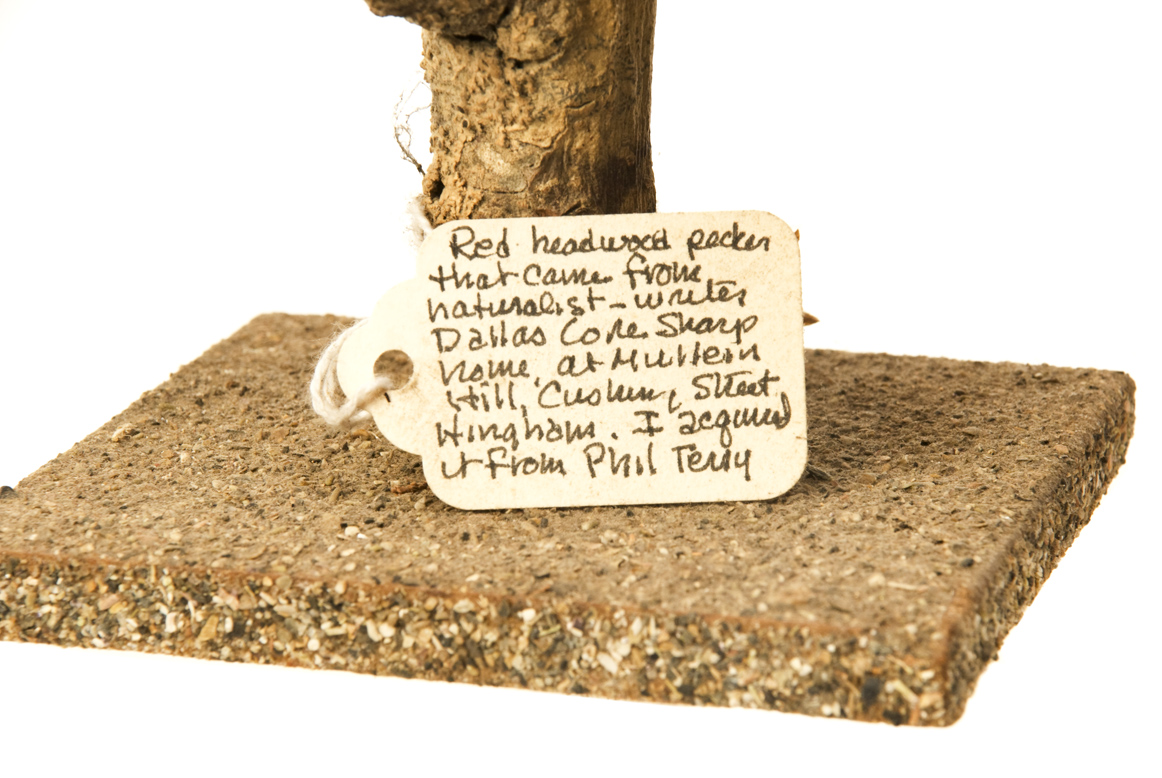 Red headwood pecker
that came from
naturalist-writer
Dallas Lore Sharp
home, at Mullein
Hill, Cushing Street
Hingham. I acquired
it from Phil Terry